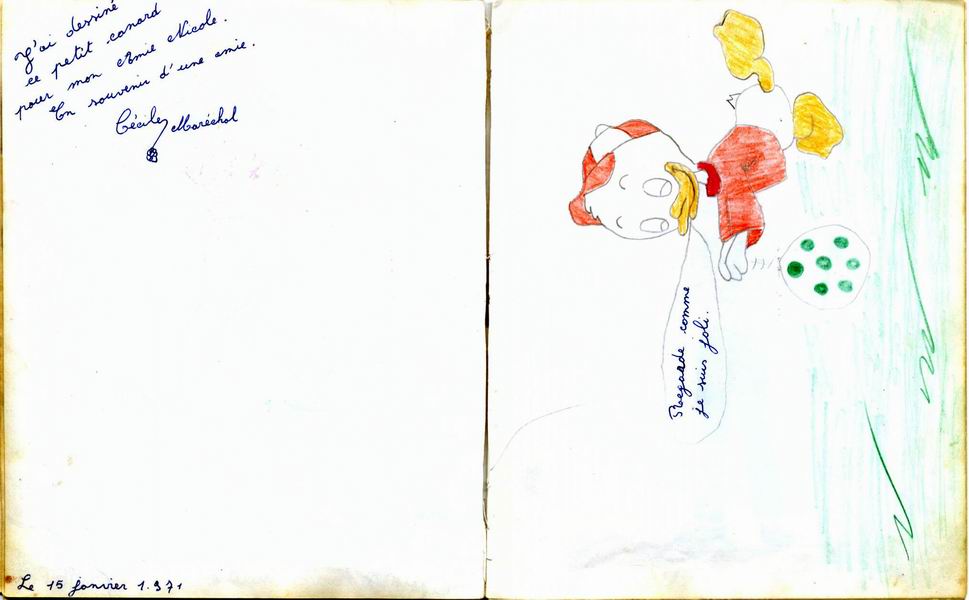 J'ai dessiné
ce petit canard
pour mon Amie Nicole.
En souvenir d'une amie.
Cécile Maréchal
Le 15 janvier 1.971
Regarde comme
je suis joli.